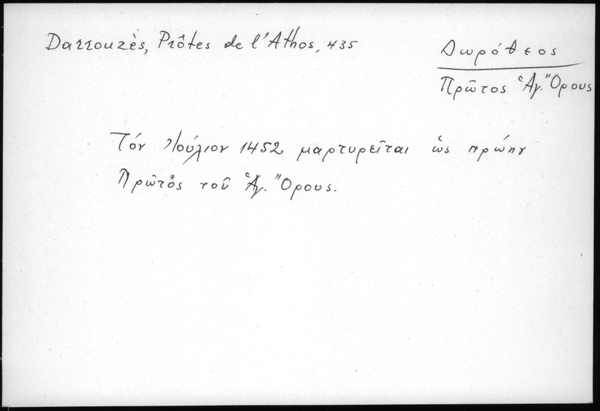 Darrouzès, Prôtes de l'Athos, 435
Δωρόθεος
Πρῶτος Ἁγ. Ὄρους
Τόν Ἰούλιον 1452 μαρτυρεῖται ὡς πρώην
Πρῶτος τοῦ Ἁγ. Ὄρους.